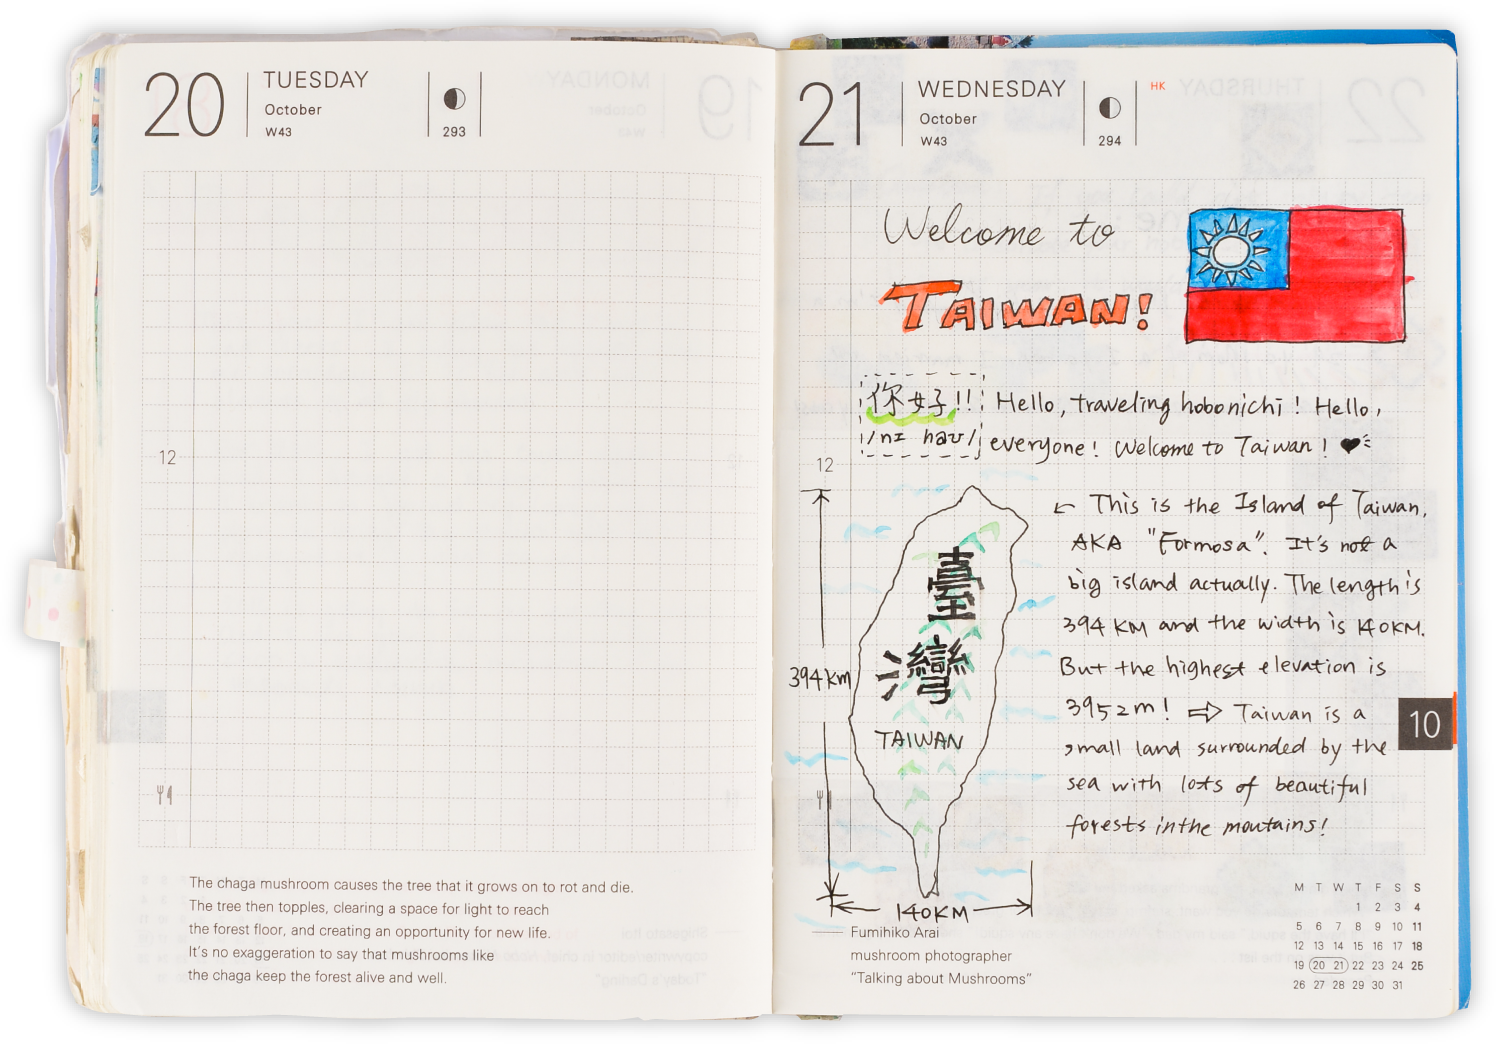 20
TUESDAY
October
W43
293
12
The chaga mushroom causes the tree that it grows on to rot and die.
The tree then topples, clearing a space for light to reach
the forest floor, and creating an opportunity for new life.
It's no exaggeration to say that mushrooms like
the chaga keep the forest alive and well.
21
WEDNESDAY
October
W43
294
HK
Welcome to
TAIWAN!
你好!!
/nɪ haʊ/
Hello, traveling hobonichi! Hello,
everyone! Welcome to Taiwan! ♥
12
← This is the Island of Taiwan,
AKA "Formosa". It's not a
big island actually. The length is
394 KM and the width is 140KM.
But the highest elevation is
3952m! ⇨ Taiwan is a
small land surrounded by the
sea with lots of beautiful
forests in the moutains!
臺
灣
TAIWAN
394km
140KM
10
Fumihiko Arai
mushroom photographer
"Talking about Mushrooms"
M T W T F S S
1 2 3 4
5 6 7 8 9 10 11
12 13 14 15 16 17 18
19 20 21 22 23 24 25
26 27 28 29 30 31